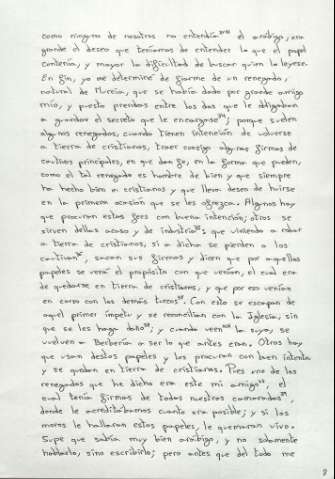 como ninguno de nosotros no entendía el arábigo, era
grande el deseo que teníamos de entender lo que el papel
contenía, y mayor la dificultad de buscar quien lo leyese.
En fin, yo me determiné de fiarme de un renegado,
natural de Murcia, que se había dado por grande amigo
mío, y puesto prendas entre los dos que le obligaban
a guardar el secreto que le encargase; porque suelen
algunos renegados, cuando tienen intención de volverse
a tierra de cristianos, traer consigo algunas firmas de
cautivos principales, en que dan fe, en la forma que pueden,
como el tal renegado es hombre de bien y que siempre
ha hecho bien a cristianos y que lleva deseo de huirse
en la primera ocasión que se les ofrezca. Algunos hay
que procuran estas fees con buena intención; otros se
sirven dellas acaso y de industria: que viniendo a robar
a tierra de cristianos, si a dicha se pierden o los
cautivan, sacan sus firmas y dicen que por aquellos
papeles se verá el propósito con que venían, el cual era
de quedarse en tierra de cristianos, y que por eso venían
en corso con los demás turcos. Con esto se escapan de
aquel primer ímpetu y se reconcilian con la Iglesia, sin
que se les haga daño; y cuando veen la suya, se
vuelven a Berbería a ser lo que antes eran. Otros hay
que usan destos papeles y los procuran con buen intento
y se quedan en tierra de cristianos. Pues uno de los
renegados que he dicho era este mi amigo, el
cual tenía firmas de todas nuestras camaradas,
donde le acreditábamos cuanto era posible; y si los
moros le hallaran estos papeles, le quemaran vivo.
Supe que sabía muy bien arábigo, y no solamente
hablarlo, sino escribirlo; pero antes que del todo me